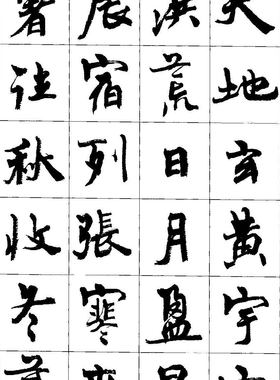 天地玄黄宇
洪荒日月盈
辰宿列張寒
暑往秋收冬